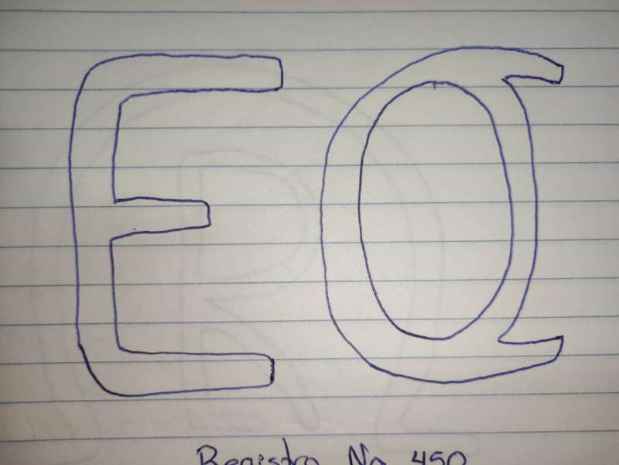 EQ
Registro No 450